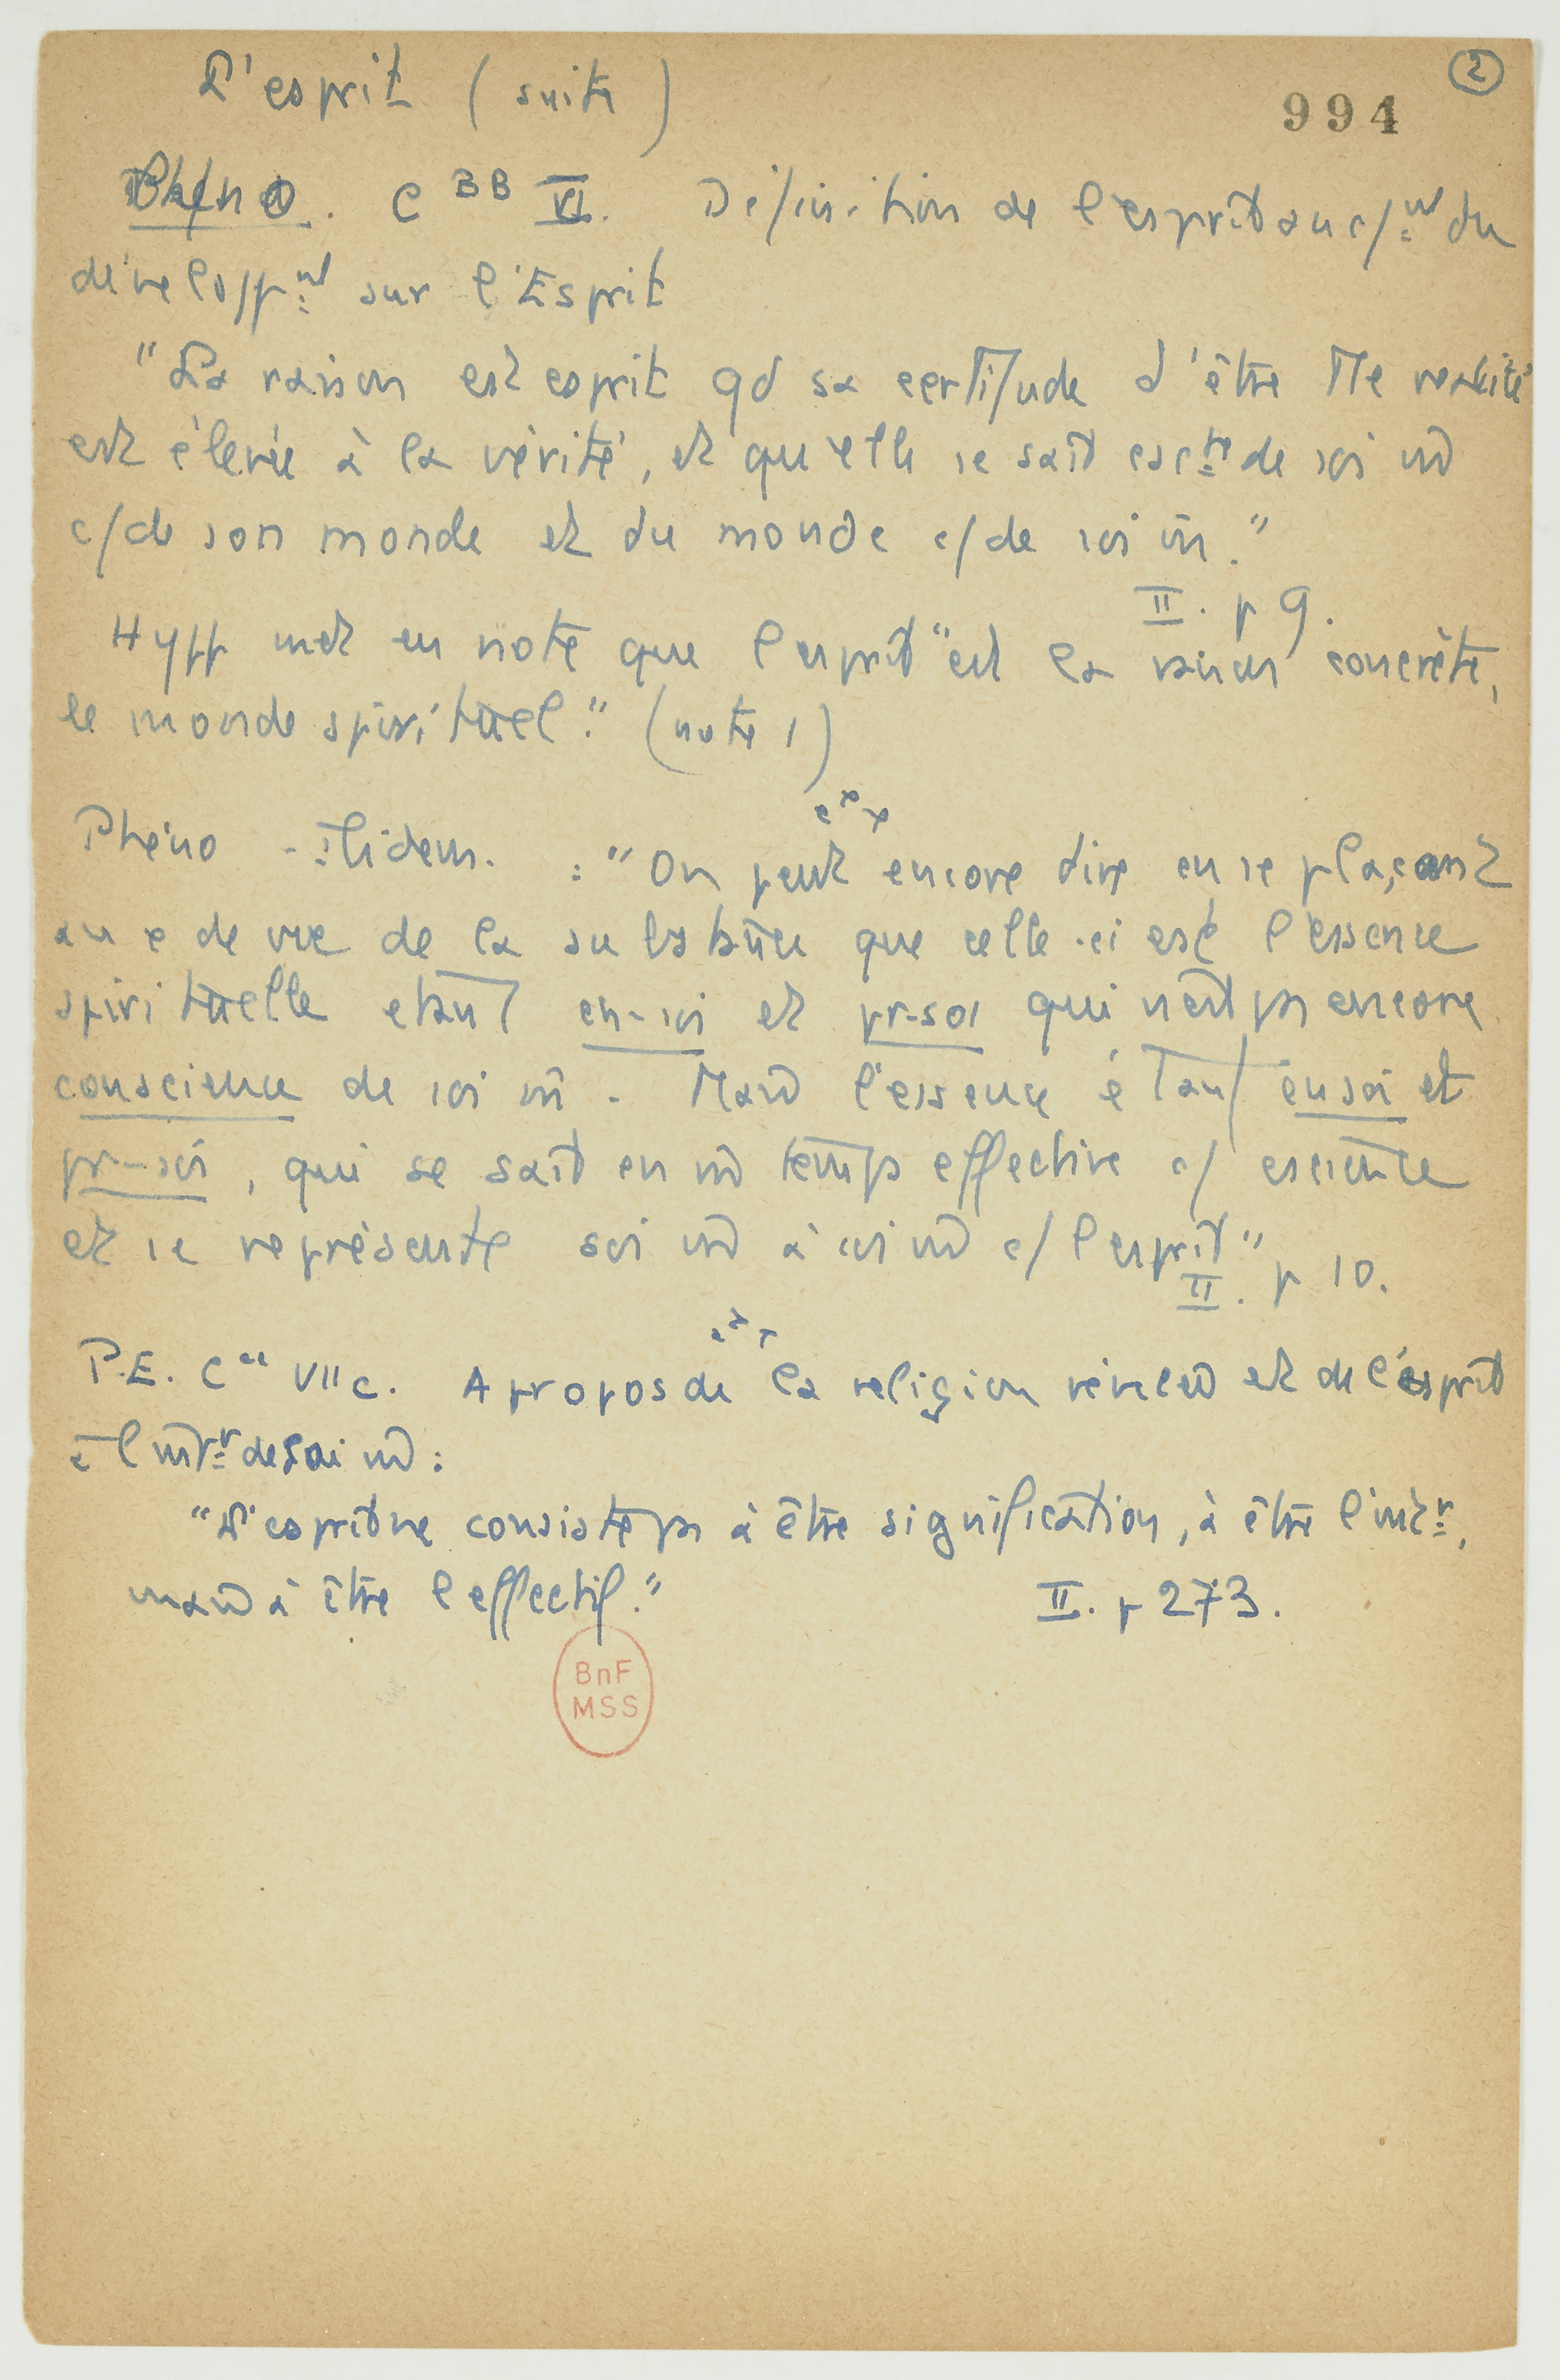 L'esprit (suite)
2
994
Phéno. C BB VI. Définition de l'esprit au c/nt du
développnt sur l'Esprit
"La raison est esprit qd sa certitude d'être tte réalité
est élevée à la vérité, et qu'elle se sait cscte de soi m̂
c/de son monde et du monde c/de soi m̂."
II. p 9.
Hypp met en note que l'esprit "est la raison concrète,
le monde spirituel." (note 1)
Phéno - Ibidem. : "On peut encore dire en se plaçant
au x de vue de la substance que celle-ci est l'essence
spirituelle étant en-soi et pr-soi qui n'est ps encore
conscience de soi m̂. Mais l'essence étant en soi et
pr-soi, qui se sait en m̂ temps effective c/ cscience
et se représente soi m̂ à soi m̂ c/ l'esprit"
II. p 10.
P.E. C cc VII c. A propos de la religion révélée et de l'esprit
intr de soi m̂ :
"L'esprit ne consiste ps à être signification, à être l'intr,
mais à être l'effectif."
II. p 273.
BnF
MSS